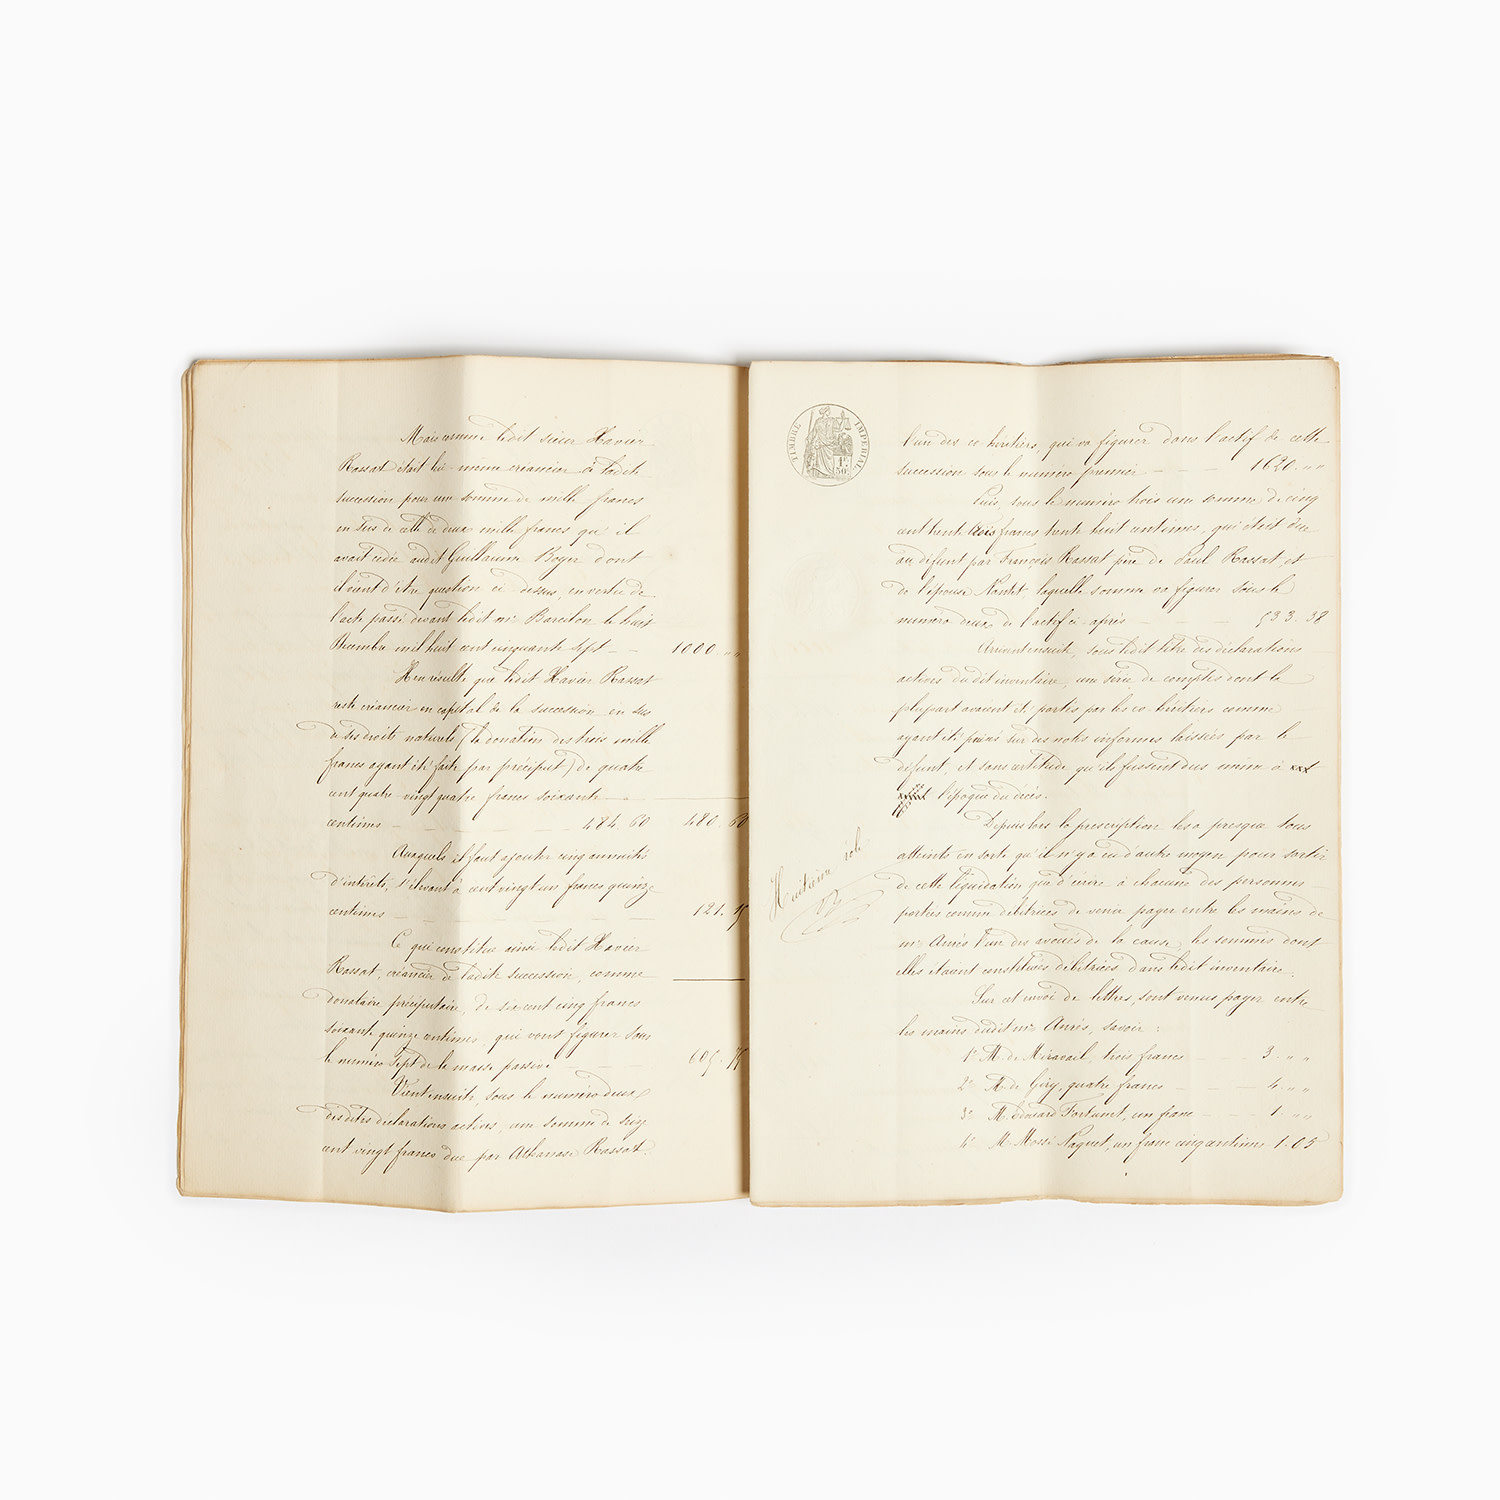 Mais comme ledit sieur Xavier
Rassat était lui-même créancier de ladite
succession pour une somme de mille francs
en sus de celle de deux mille francs qu'il
avait cédée audit Guillaume Boyer dont
il vient d'être question ci-dessus, en vertu de
l'acte passé devant ledit me Barcilon le huit
9bembre mil huit cent cinquante sept 1000. " "
Il en résulte que ledit Xavier Rassat
reste créancier en capital de la succession en sus
de ses droits naturels (la donation des trois mille
francs ayant été faite par préciput) de quatre
cent quatre vingt quatre francs soixante
centimes 484. 60 480. 60
Auxquels il faut ajouter cinq annuités
d'intérêts, s'élevant à cent vingt un francs quinze
centimes 121. 15
Ce qui constitue ainsi ledit Xavier
Rassat, créancier de ladite succession, comme
donataire préciputaire, de six cent cinq francs
soixante quinze centimes, qui vont figurer sous
le numéro sept de la masse passive 605. 75
Vient ensuite, sous le numéro deux
desdites déclarations actives, une somme de seize
cent vingt francs due par Athanase Rassat
TIMBRE IMPERIAL
1F 50C
l'un des co-héritiers, qui va figurer dans l'actif de cette
succession sous le numéro premier 1620. " "
Puis, sous le numéro trois une somme de cinq
cent trente trois francs trente huit centimes, qui était due
au défunt par François Rassat père de Paul Rassat et
de l'épouse Nantet, laquelle somme va figurer sous le
numéro deux de l'actif ci-après 533. 38
Arrivent ensuite, sous ledit titre des déclarations
actives dudit inventaire, une série de comptes dont la
plupart avaient été portés par les co-héritiers comme
ayant été puisés sur des notes informes laissées par le
défunt, et sans certitude qu'ils fussent dus même à
l'époque du décès.
Depuis lors la prescription les a presque tous
atteints en sorte qu'il n'y a eu d'autre moyen pour sortir
de cette liquidation que d'écrire à chacune des personnes
portées comme débitrices de venir payer entre les mains de
me Aurès l'un des avoués de la cause, les sommes dont
elles étaient constituées débitrices dans ledit inventaire.
Sur cet envoi de lettres, sont venus payer entre
les mains dudit me Aurès, savoir :
1° M. de Miravail, trois francs 3. " "
2° M. de Géry, quatre francs 4 " "
3° M. édouard Fortunet, un franc 1. " "
4° M. Mossé Naquet, un franc cinq centimes 1. 05
Huitième rôle